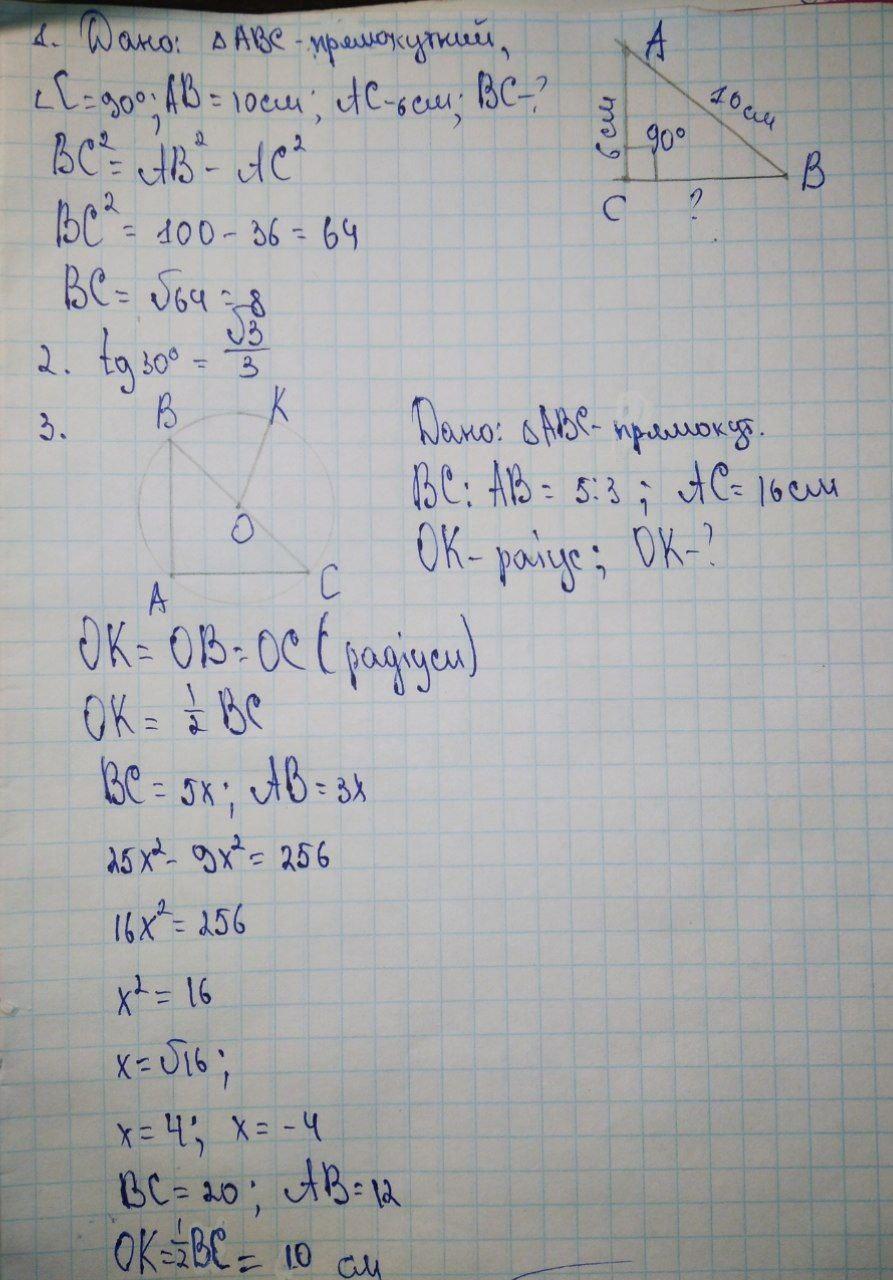 1. Дано: △ABC - прямокутний,
∠C = 90°; AB = 10 см; AC - 6 см; BC - ?
BC² = AB² - AC²
BC² = 100 - 36 = 64
BC = √64 = 8
A
6 см
10 см
90°
C
?
B
2. tg 30° = √3/3
3.
B
K
O
A
C
Дано: △ABC - прямокут.
BC : AB = 5:3 ; AC = 16 см
OK - раіус ; OK - ?
OK = OB = OC (радіуси)
OK = 1/2 BC
BC = 5x ; AB = 3x
25x² - 9x² = 256
16x² = 256
x² = 16
x = √16 ;
x = 4 ; x = -4
BC = 20 ; AB = 12
OK = 1/2 BC = 10 см